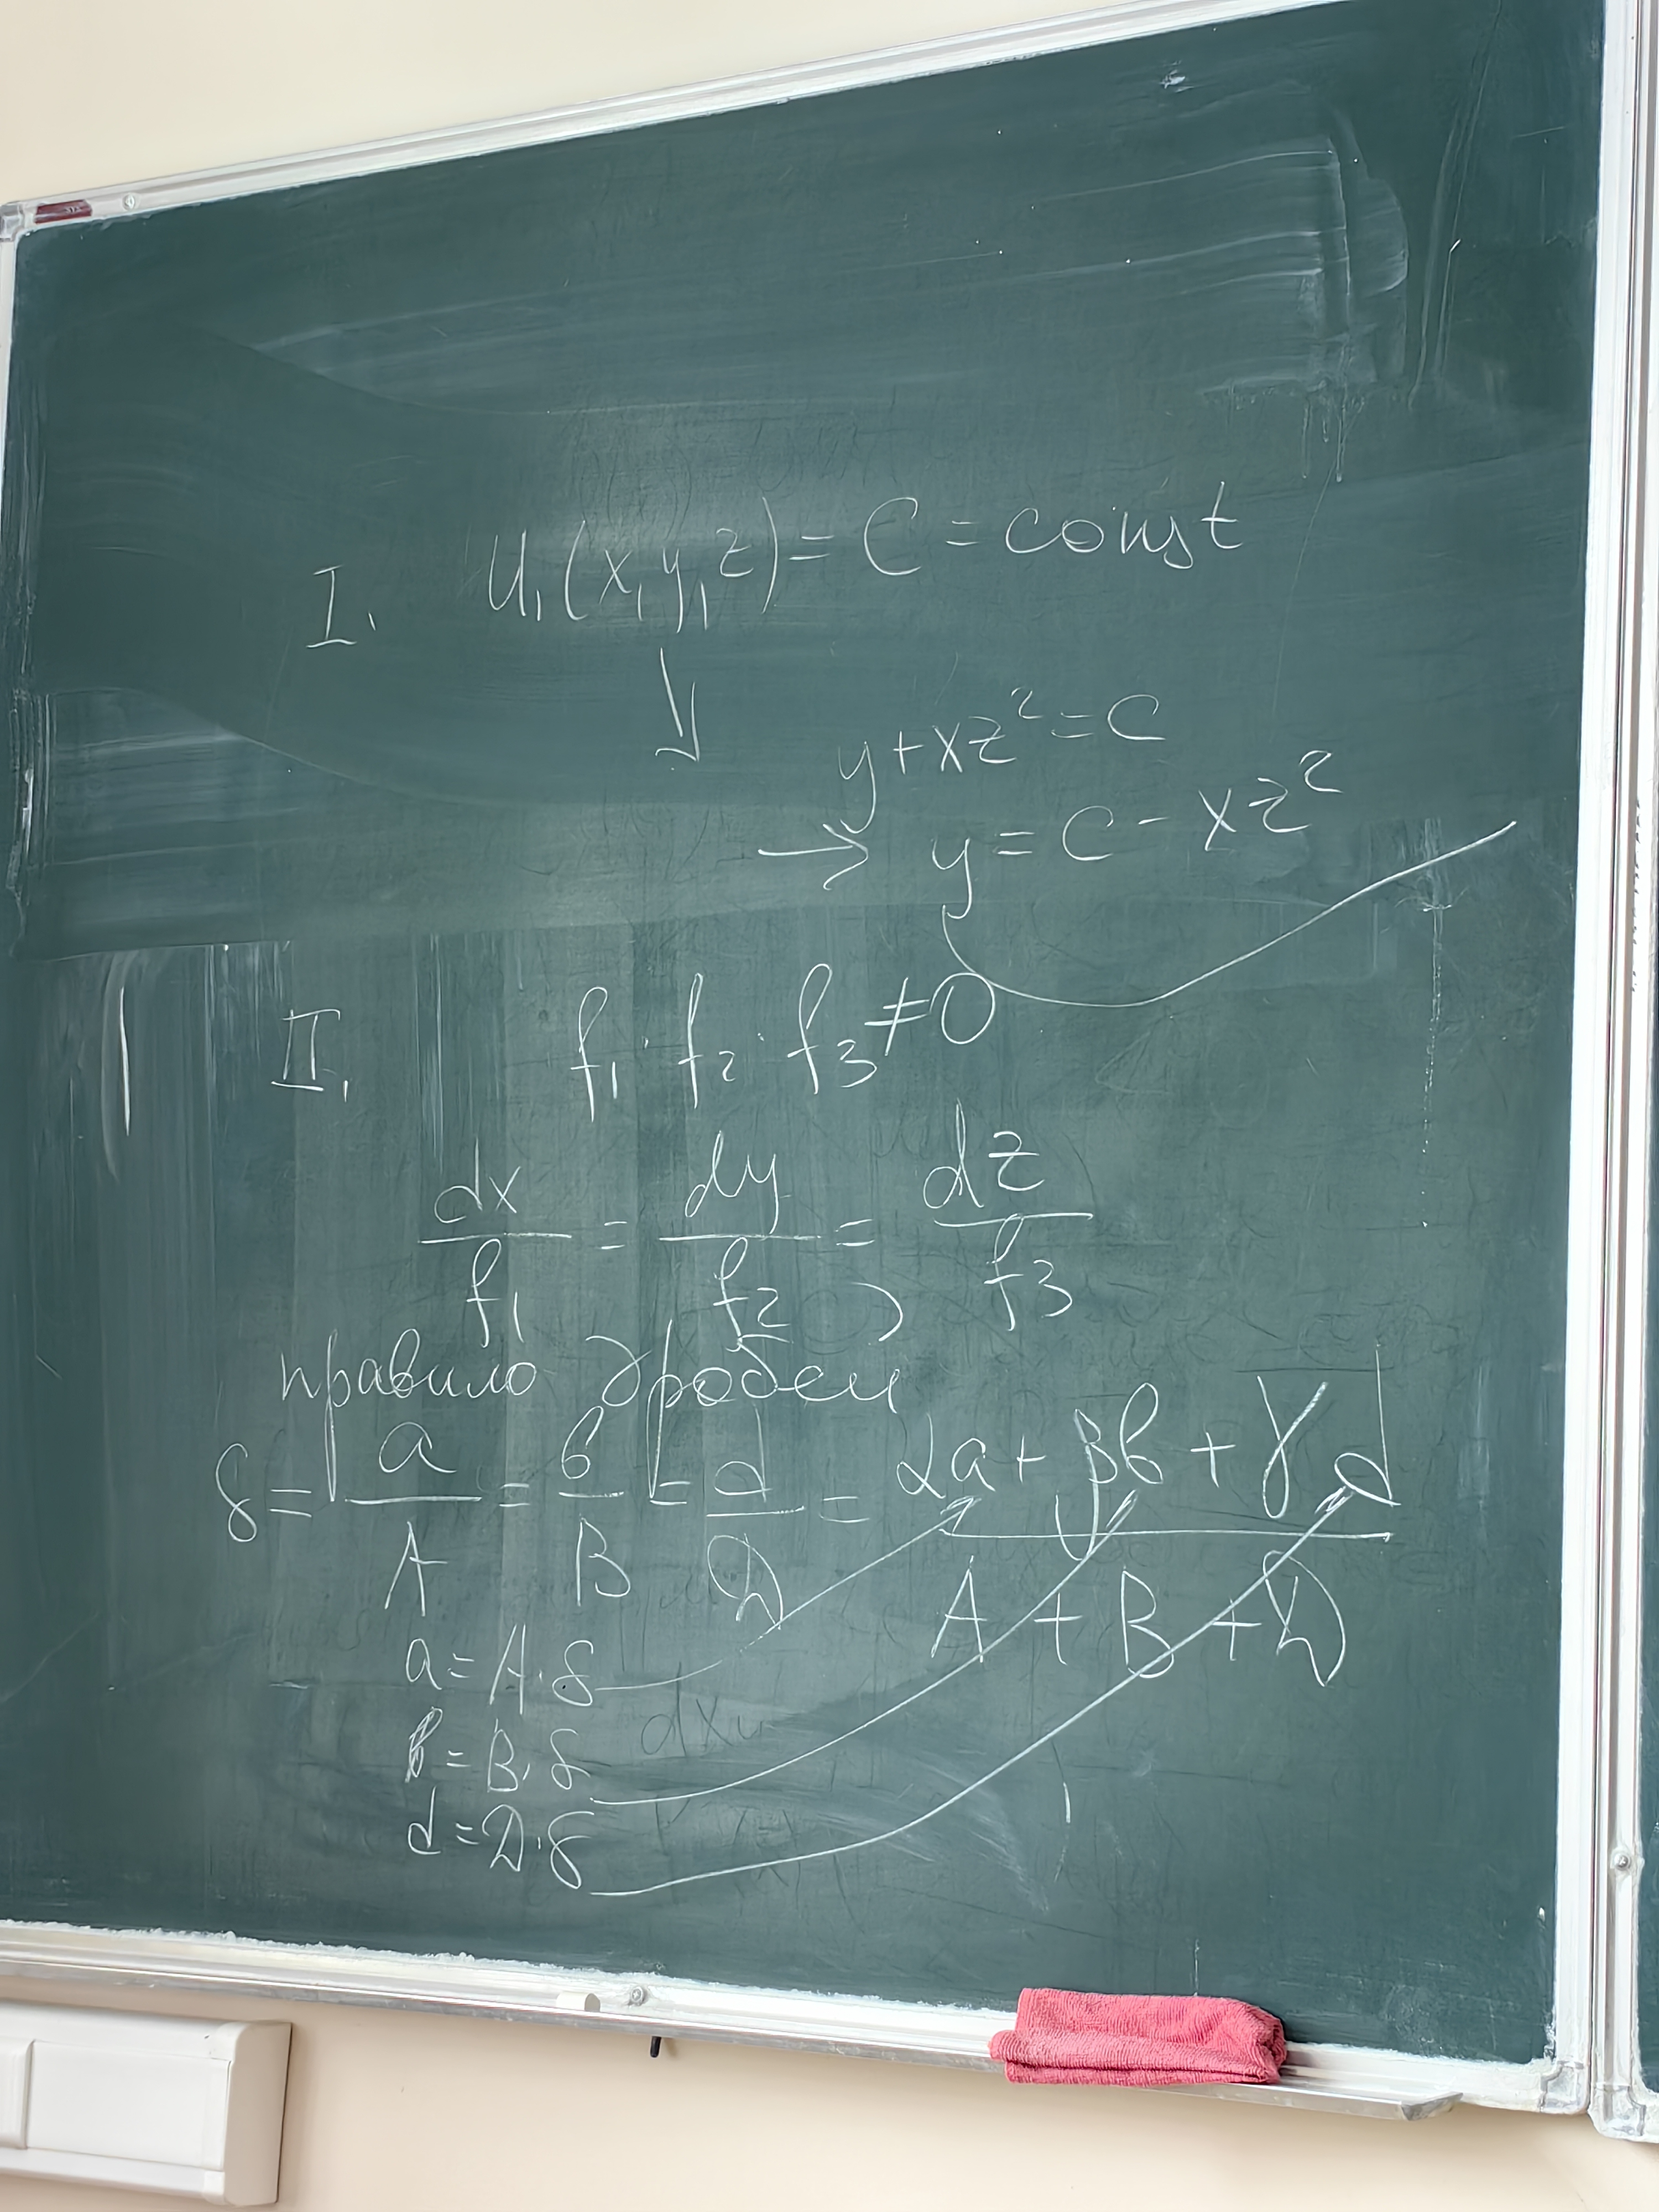 I. U₁(x, y, z) = C = const
↓
y + xz² = C
→ y = C - xz²
II. f₁ · f₂ · f₃ ≠ 0
dx/f₁ = dy/f₂ = dz/f₃
правило дробей
δ = a/A = b/B = d/D = (αa + βb + γd)/(A + B + D)
a = A · δ
b = B · δ
d = D · δ